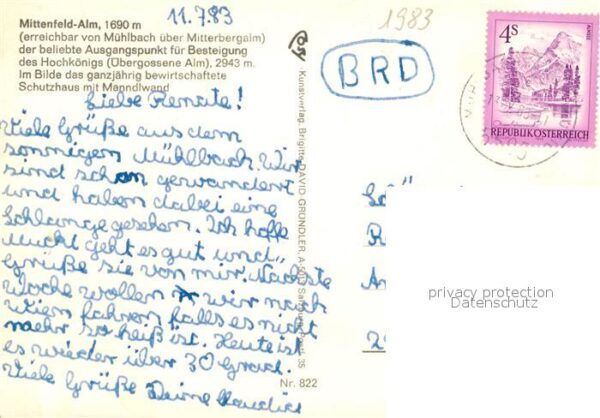 11.7.83
1983
Mittenfeld-Alm, 1690 m
(erreichbar von Mühlbach über Mitterbergalm)
der beliebte Ausgangspunkt für Besteigung
des Hochkönigs (Übergossene Alm), 2943 m.
Im Bilde das ganzjährig bewirtschaftete
Schutzhaus mit Manndlwand
BRD
4S
REPUBLIK ÖSTERREICH
Liebe Renate!
Viele Grüße aus dem
sonnigen Mühlbach. Wir
sind schon gewandert
und haben dabei eine
Schlange gesehen. Ich hoffe
Mucki geht es gut und
grüße sie von mir. Nächste
Woche wollen wir nach
Wien fahren falls es nicht
mehr so heiß ist. Heute ist
es wieder über 30 Grad.
Viele Grüße Deine Claudia
Kunstverlag Brigitte DAVID GRUNDLER, A-5013 Salzburg, Postf. 35
Nr. 822
privacy protection
Datenschutz